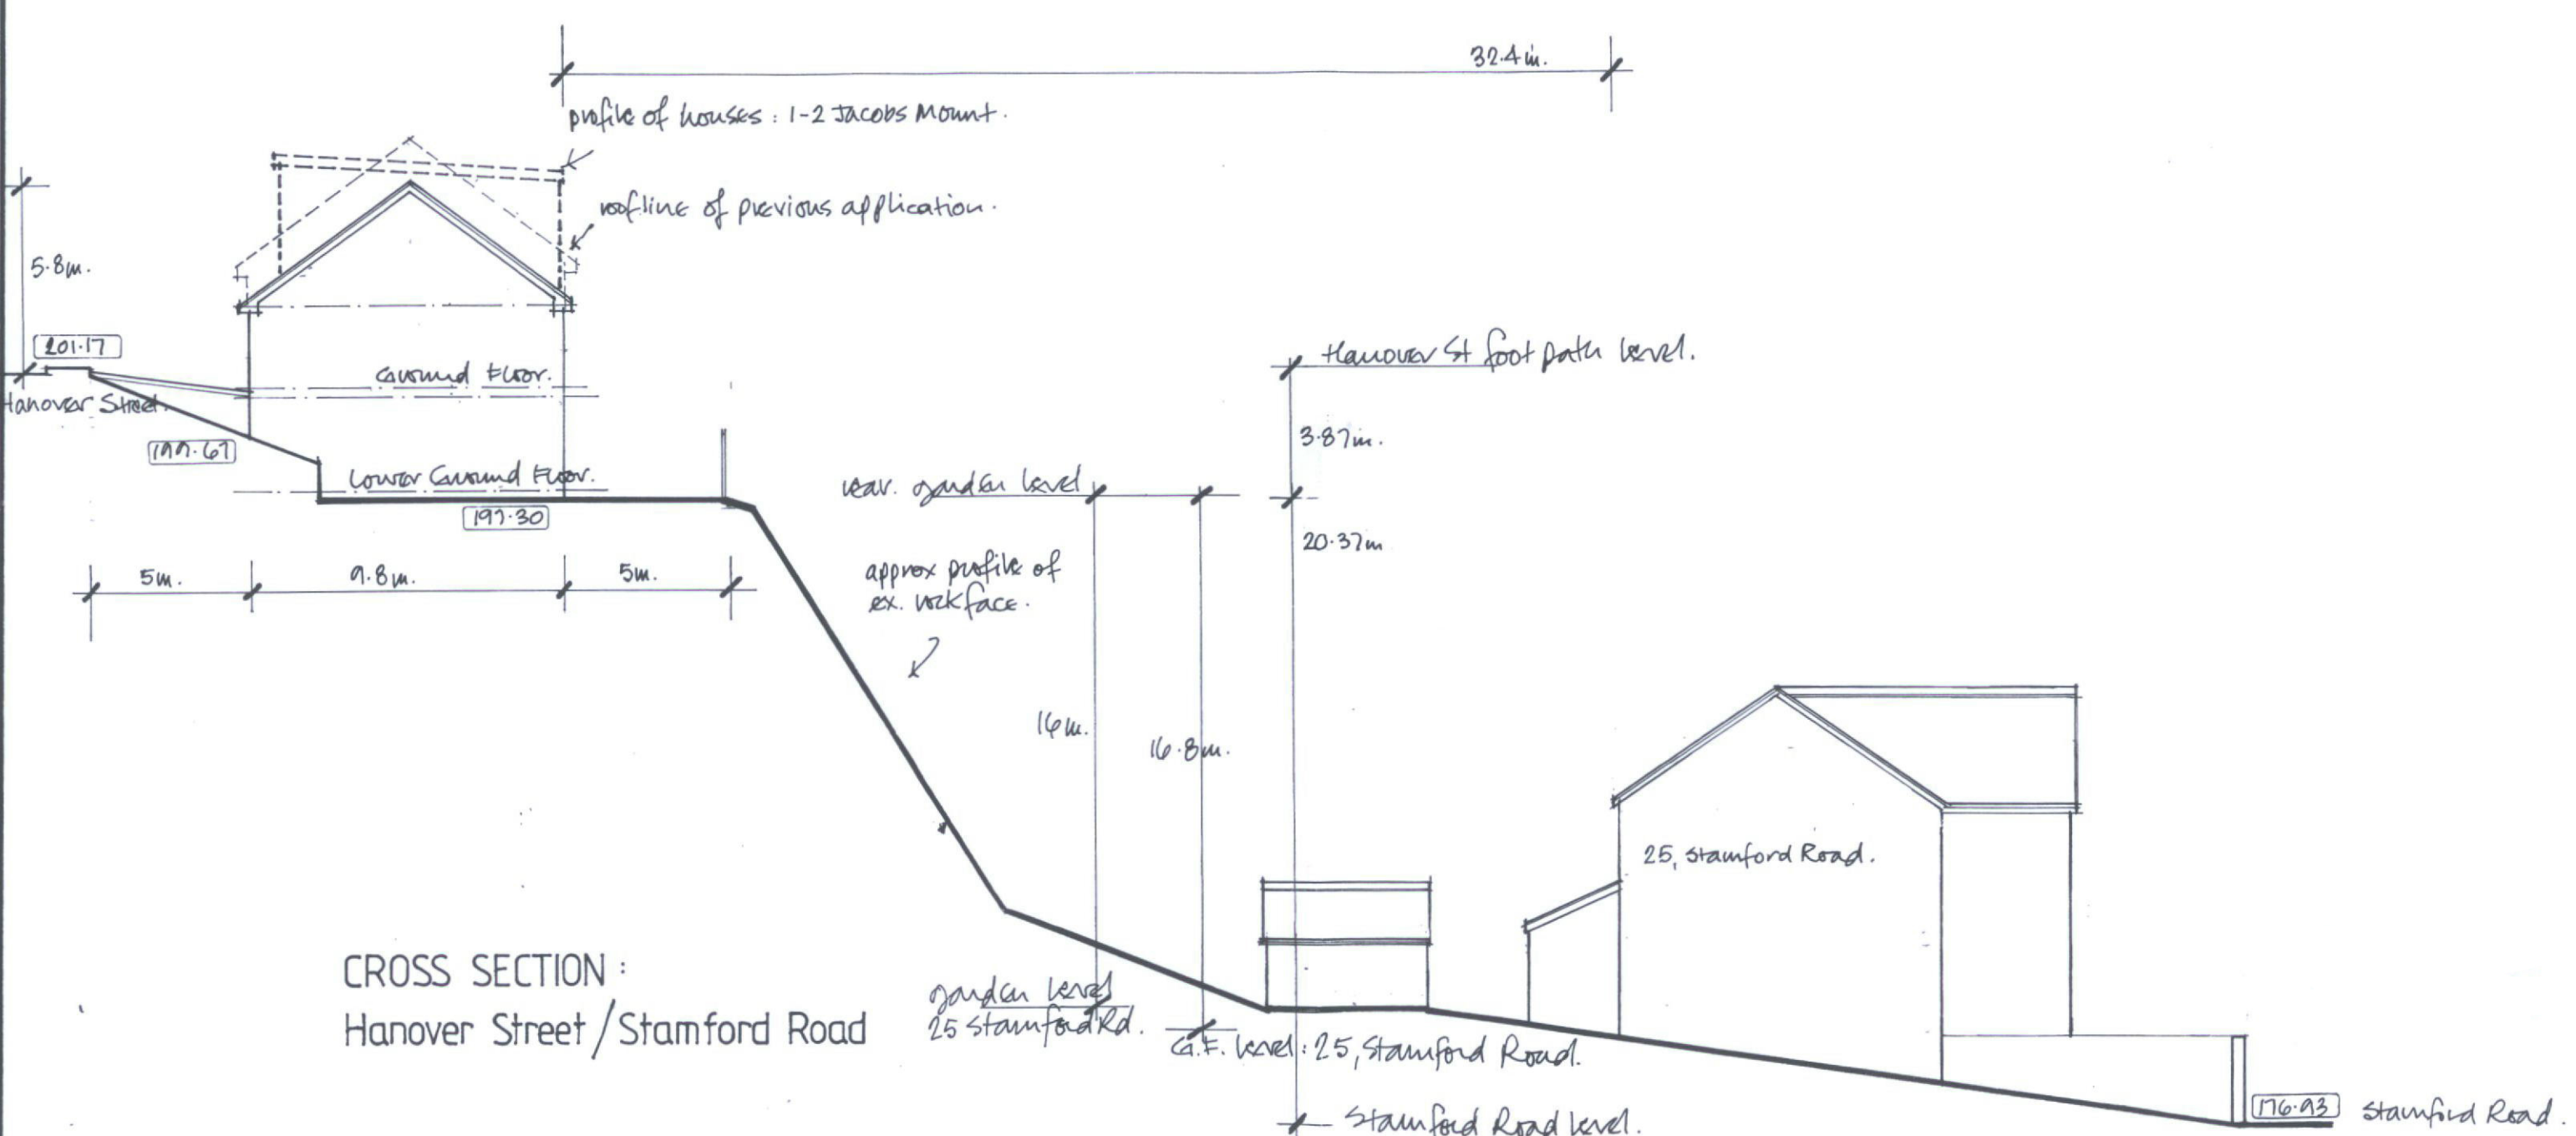 32.4m.
profile of houses : 1-2 Jacobs Mount.
roofline of previous application.
5.8m.
201.17
Hanover Street.
Ground Floor.
199.67
Lower Ground Floor.
197.30
5m.
9.8m.
5m.
Hanover St foot path level.
3.87m.
rear. garden level
20.37m
approx profile of
ex. rockface.
16m.
16.8m.
25, Stamford Road.
CROSS SECTION :
Hanover Street / Stamford Road
garden level
25 Stamford Rd.
G.F. level : 25, Stamford Road.
Stamford Road level.
176.93
Stamford Road.